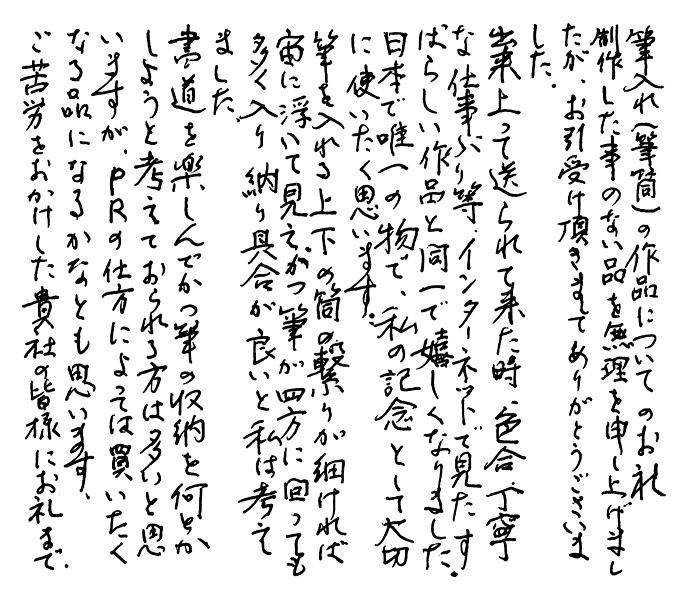 筆入れ(筆筒)の作品についてのお礼
制作した事のない品を無理を申し上げまし
たが、お引受け頂きましてありがとうございま
した。
出来上って送られて来た時、色合、丁寧
な仕事ぶり等、インターネットで見たす
ばらしい作品と同一で嬉しくなりました。
日本で唯一の物で、私の記念として大切
に使いたく思います。
筆を入れる上下の筒の繋りが細ければ
宙に浮いて見え、かつ筆が四方に回っても
多く入り納り具合が良いと私は考え
ました。
書道を楽しんでかつ筆の収納を何とか
しようと考えておられる方は多いと思
いますが、PRの仕方によっては買いたく
なる品になるかなとも思います、
ご苦労をおかけした貴社の皆様にお礼まで.